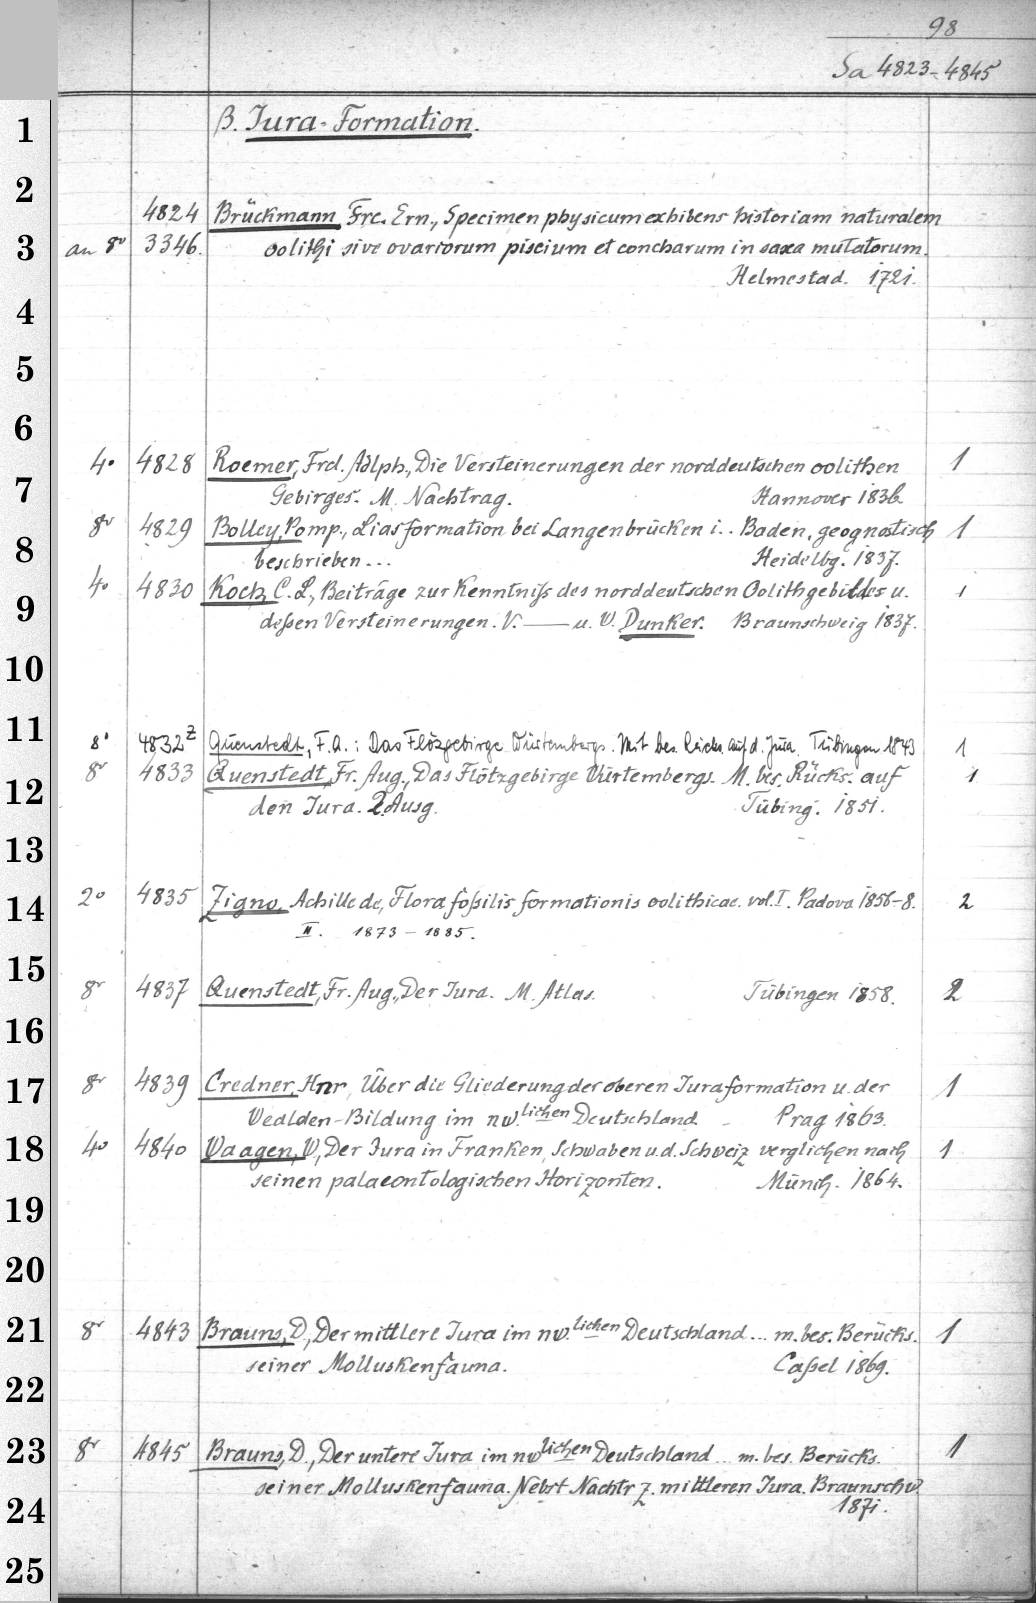 98
Sa 4823-4845
1
β. Jura-Formation.
2
4824 Brückmann, Frc. Ern., Specimen physicum exhibens historiam naturalem
3 an 8° 3346. oolithi sive ovariorum piscium et concharum in saxa mutatorum.
Helmestad. 1721.
4
5
6
4° 4828 Roemer, Frd. Adlph., Die Versteinerungen der norddeutschen oolithen 1
7 Gebirges. M. Nachtrag. Hannover 1836.
8° 4829 Bolley, Pomp., Liasformation bei Langenbrücken i.. Baden, geognostisch 1
8 beschrieben... Heidelbg. 1837.
4° 4830 Koch, C. L., Beiträge zur Kenntniß des norddeutschen Oolithgebildes u. 1
9 deßen Versteinerungen. V. — u. W. Dunker. Braunschweig 1837.
10
11
8° 4832z Quenstedt, F. A.: Das Flözgebirge Würtembergs. Mit bes. Rücks. auf d. Jura. Tübingen 1843 1
8° 4833 Quenstedt, Fr. Aug., Das Flötzgebirge Würtembergs. M. bes. Rücks. auf 1
12 den Jura. 2. Ausg. Tübing. 1851.
13
2° 4835 Zigno, Achille de, Flora foßilis formationis oolithicae. vol. I. Padova 1856-8. 2
14 II. 1873-1885.
15
8° 4837 Quenstedt, Fr. Aug., Der Jura. M. Atlas. Tübingen 1858. 2
16
8° 4839 Credner, Hnr, Über die Gliederung der oberen Juraformation u. der 1
17 Wealden-Bildung im nw.lichen Deutschland. Prag 1863.
18 4° 4840 Waagen, W., Der Jura in Franken, Schwaben u. d. Schweiz verglichen nach 1
seinen palaeontologischen Horizonten. Münch. 1864.
19
20
21 8° 4843 Brauns, D., Der mittlere Jura im nw.lichen Deutschland... m. bes. Berücks. 1
seiner Molluskenfauna. Caßel 1869.
22
23 8° 4845 Brauns, D., Der untere Jura im nwlichen Deutschland... m. bes. Berücks. 1
seiner Molluskenfauna. Nebst Nachtr z. mittleren Jura. Braunschw.
24 1871.
25